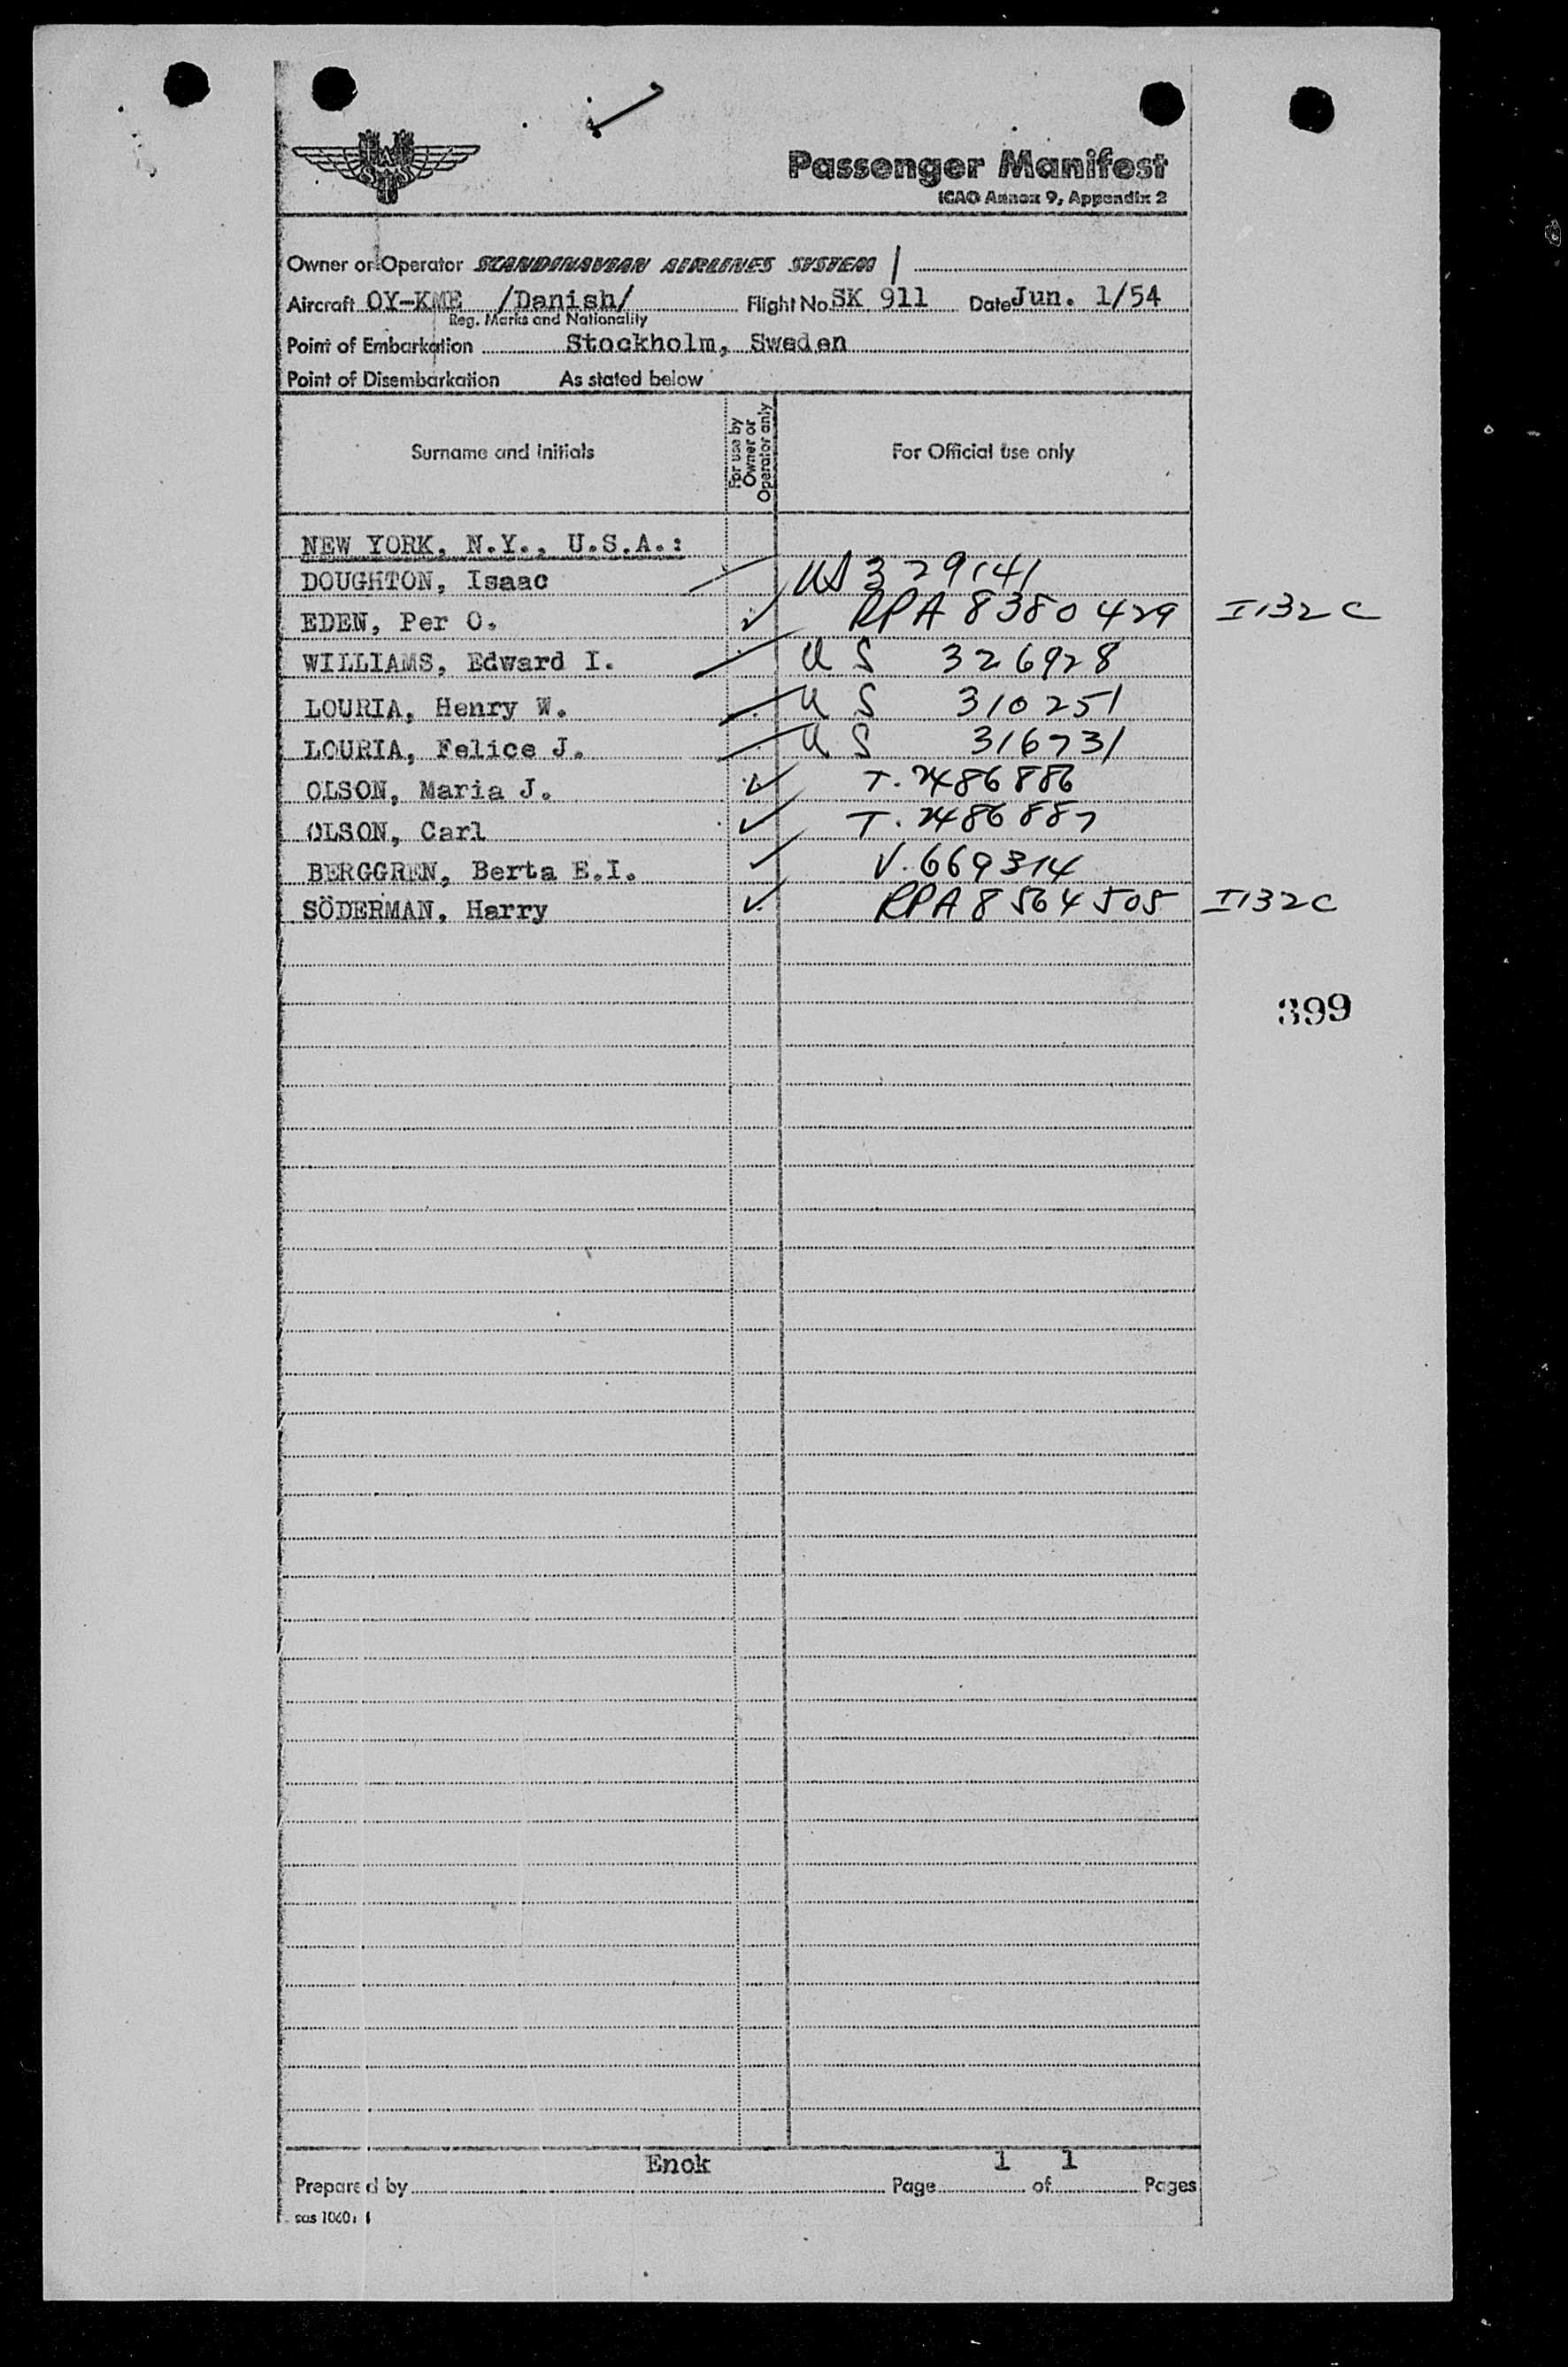 SAS
Passenger Manifest
ICAO Annex 9, Appendix 2
Owner or Operator SCANDINAVIAN AIRLINES SYSTEM /
Aircraft OY-KME /Danish/ Flight No. SK 911 Date Jun. 1/54
Reg. Marks and Nationality
Point of Embarkation Stockholm, Sweden
Point of Disembarkation As stated below
Surname and initials For use by Owner or Operator only For Official use only
NEW YORK, N.Y., U.S.A.:
DOUGHTON, Isaac US 329141
EDEN, Per O. RPA 8380429 I132C
WILLIAMS, Edward I. US 326928
LOURIA, Henry W. US 310251
LOURIA, Felice J. US 316731
OLSON, Maria J. T. 2486886
OLSON, Carl T. 2486887
BERGGREN, Berta E.I. V. 669314
SÖDERMAN, Harry RPA 8564505 I132C
399
Prepared by Enok Page 1 of 1 Pages
sas 1060